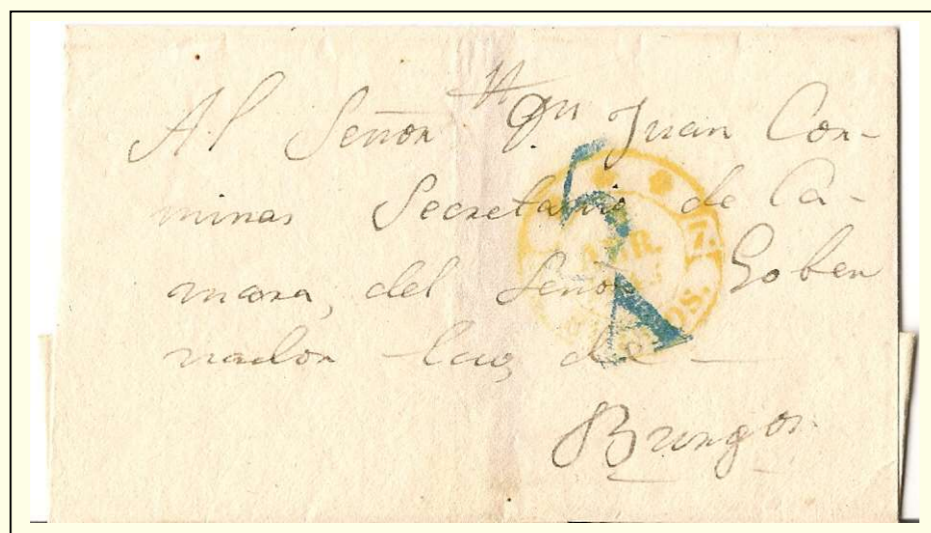 Al Señor Dn Juan Cor-
minas Secretario de Ca-
mara, del Señor Gober
nador de
Burgos
ABR.
7.
OS.